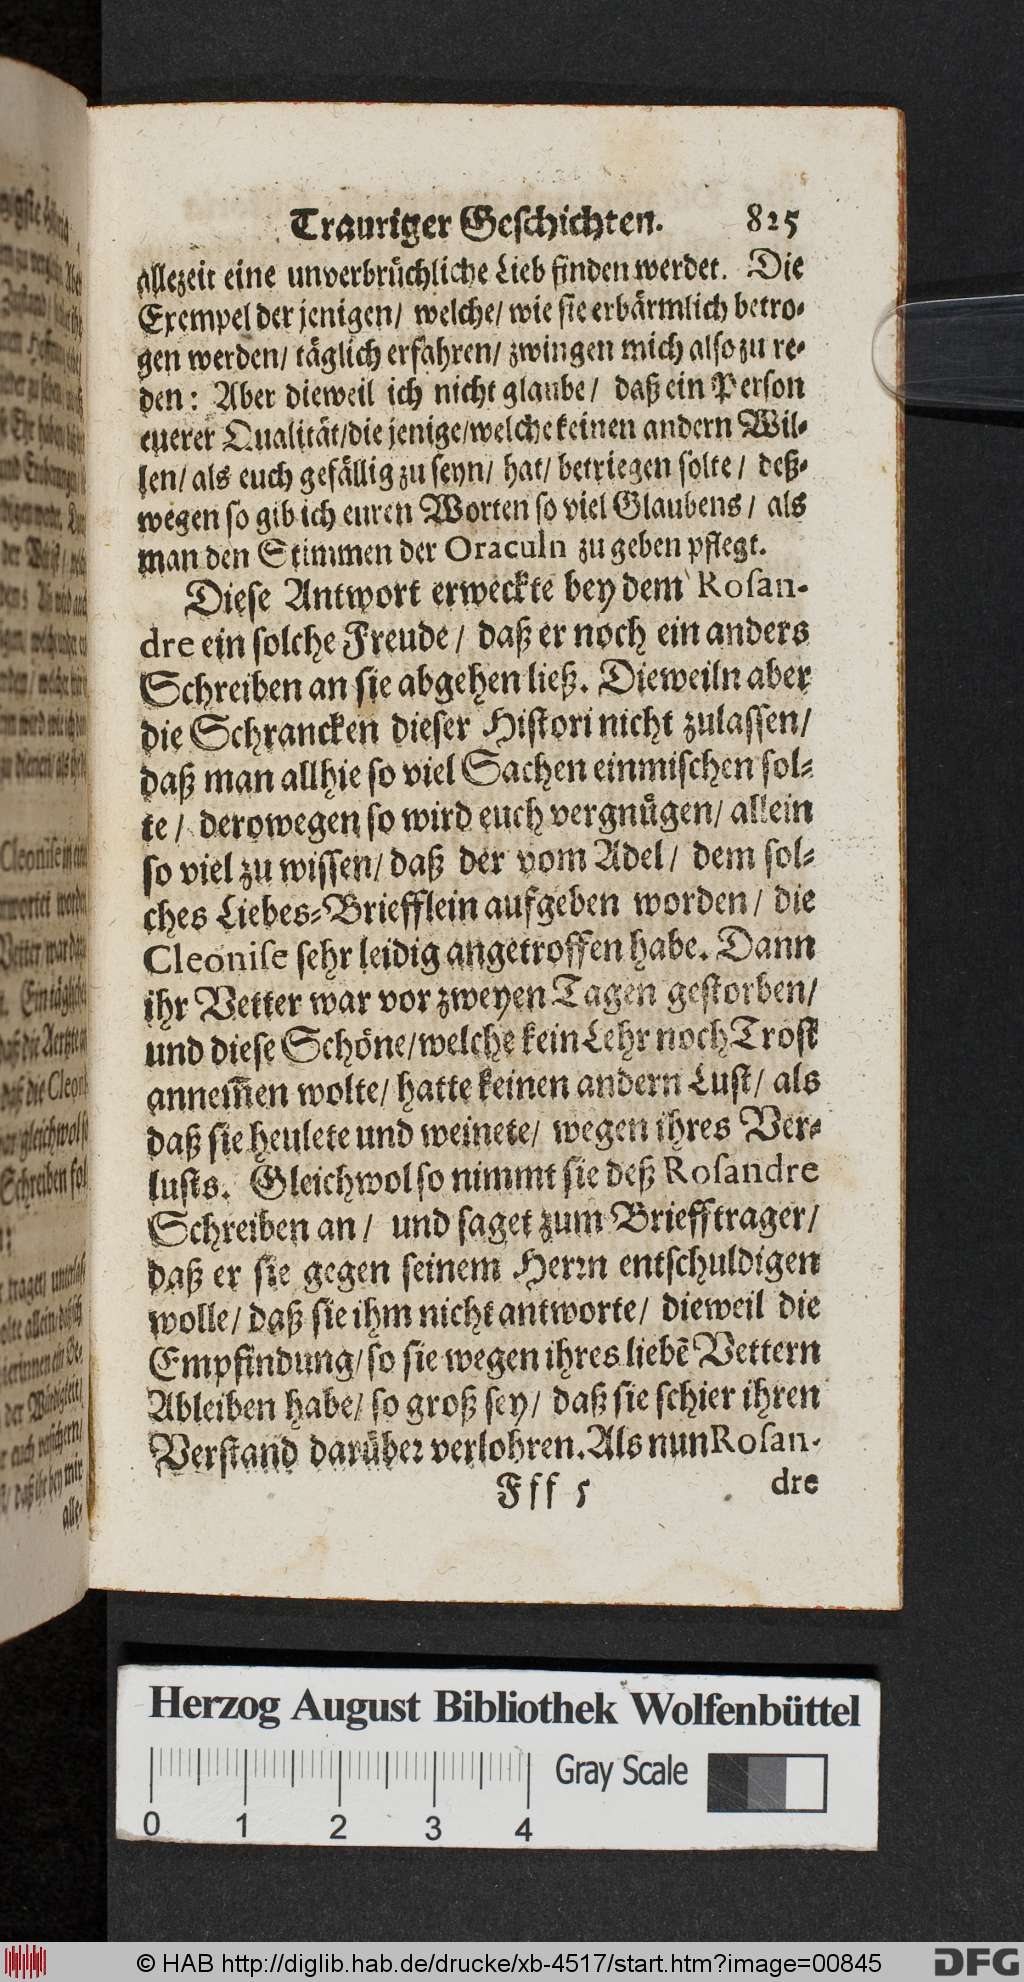 Trauriger Geschichten. 825
allezeit eine unverbrüchliche Lieb finden werdet. Die
Exempel der jenigen/ welche/ wie sie erbärmlich betro-
gen werden/ täglich erfahren/ zwingen mich also zu re-
den: Aber dieweil ich nicht glaube/ daß ein Person
euerer Qualität/die jenige/welche keinen andern Wil-
len/ als euch gefällig zu seyn/ hat/ betriegen solte/ deß-
wegen so gib ich euren Worten so viel Glaubens/ als
man den Stimmen der Oraculn zu geben pflegt.
Diese Antwort erweckte bey dem Rosan-
dre ein solche Freude/ daß er noch ein anders
Schreiben an sie abgehen ließ. Dieweiln aber
die Schrancken dieser Histori nicht zulassen/
daß man allhie so viel Sachen einmischen sol-
te/ derowegen so wird euch vergnügen/ allein
so viel zu wissen/ daß der vom Adel/ dem sol-
ches Liebes-Briefflein aufgeben worden/ die
Cleonise sehr leidig angetroffen habe. Dann
ihr Vetter war vor zweyen Tagen gestorben/
und diese Schöne/welche kein Lehr noch Trost
annem̃en wolte/ hatte keinen andern Lust/ als
daß sie heulete und weinete/ wegen ihres Ver-
lusts. Gleichwol so nimmt sie deß Rosandre
Schreiben an/ und saget zum Briefftrager/
daß er sie gegen seinem Herrn entschuldigen
wolle/ daß sie ihm nicht antworte/ dieweil die
Empfindung/so sie wegen ihres liebẽ Vettern
Ableiben habe/ so groß sey/ daß sie schier ihren
Verstand darüber verlohren. Als nun Rosan-
Fff 5 dre
Herzog August Bibliothek Wolfenbüttel
Gray Scale
0 1 2 3 4
© HAB http://diglib.hab.de/drucke/xb-4517/start.htm?image=00845
DFG